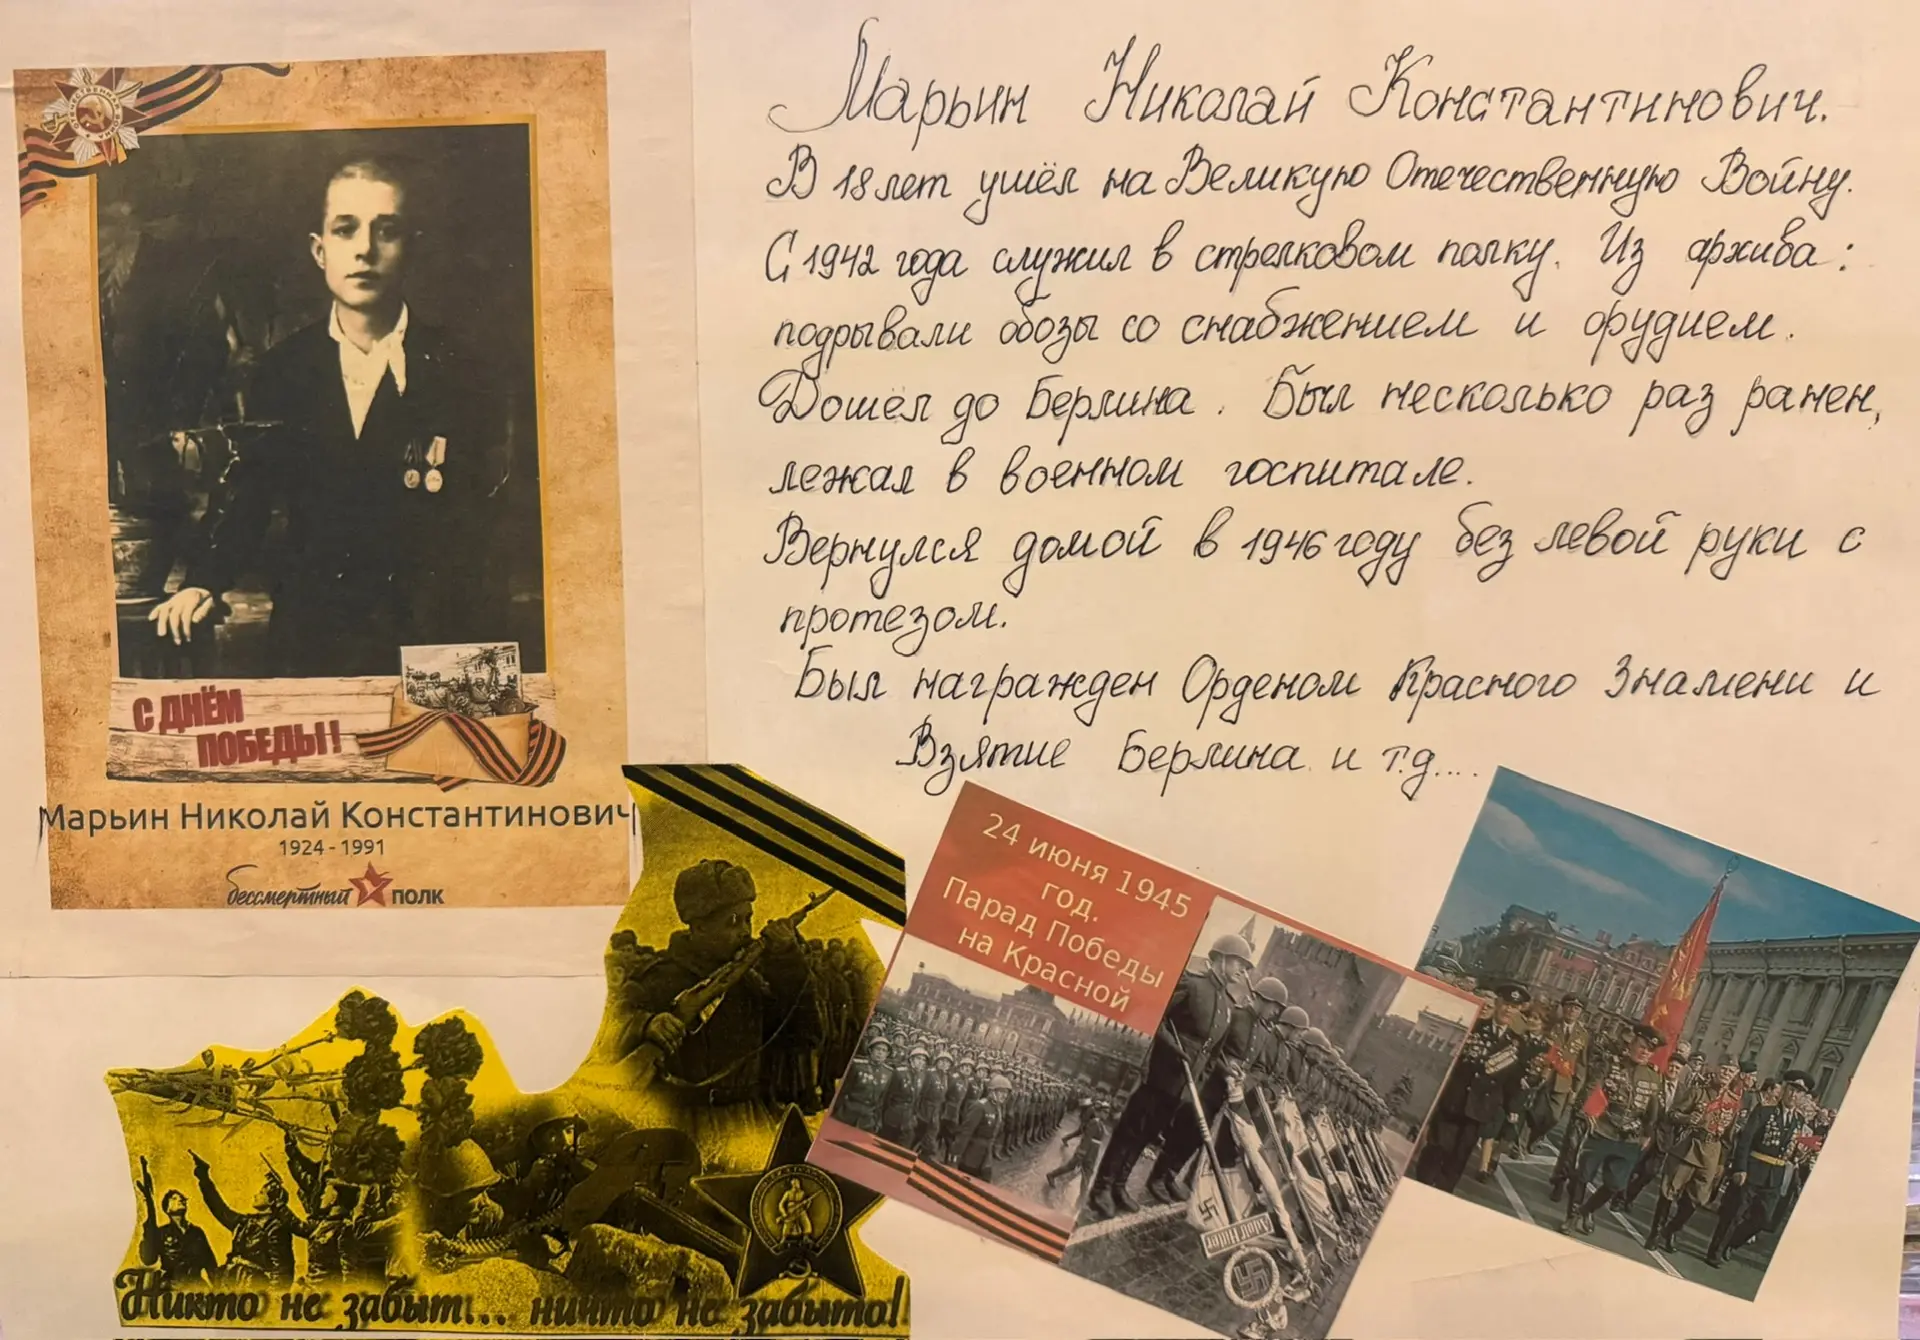 ОТЕЧЕСТВЕННАЯ ВОЙНА
С ДНЁМ
ПОБЕДЫ!
Марьин Николай Константинович
1924 - 1991
бессмертный ПОЛК
Марьин Николай Константинович.
В 18 лет ушёл на Великую Отечественную Войну.
С 1942 года служил в стрелковом полку. Из архива:
подрывали обозы со снабжением и орудием.
Дошёл до Берлина. Был несколько раз ранен,
лежал в военном госпитале.
Вернулся домой в 1946 году без левой руки с
протезом.
Был награжден Орденом Красного Знамени и
Взятие Берлина и т.д....
24 июня 1945
год.
Парад Победы
на Красной
Adolf Hitler
Никто не забыт... ничто не забыто!